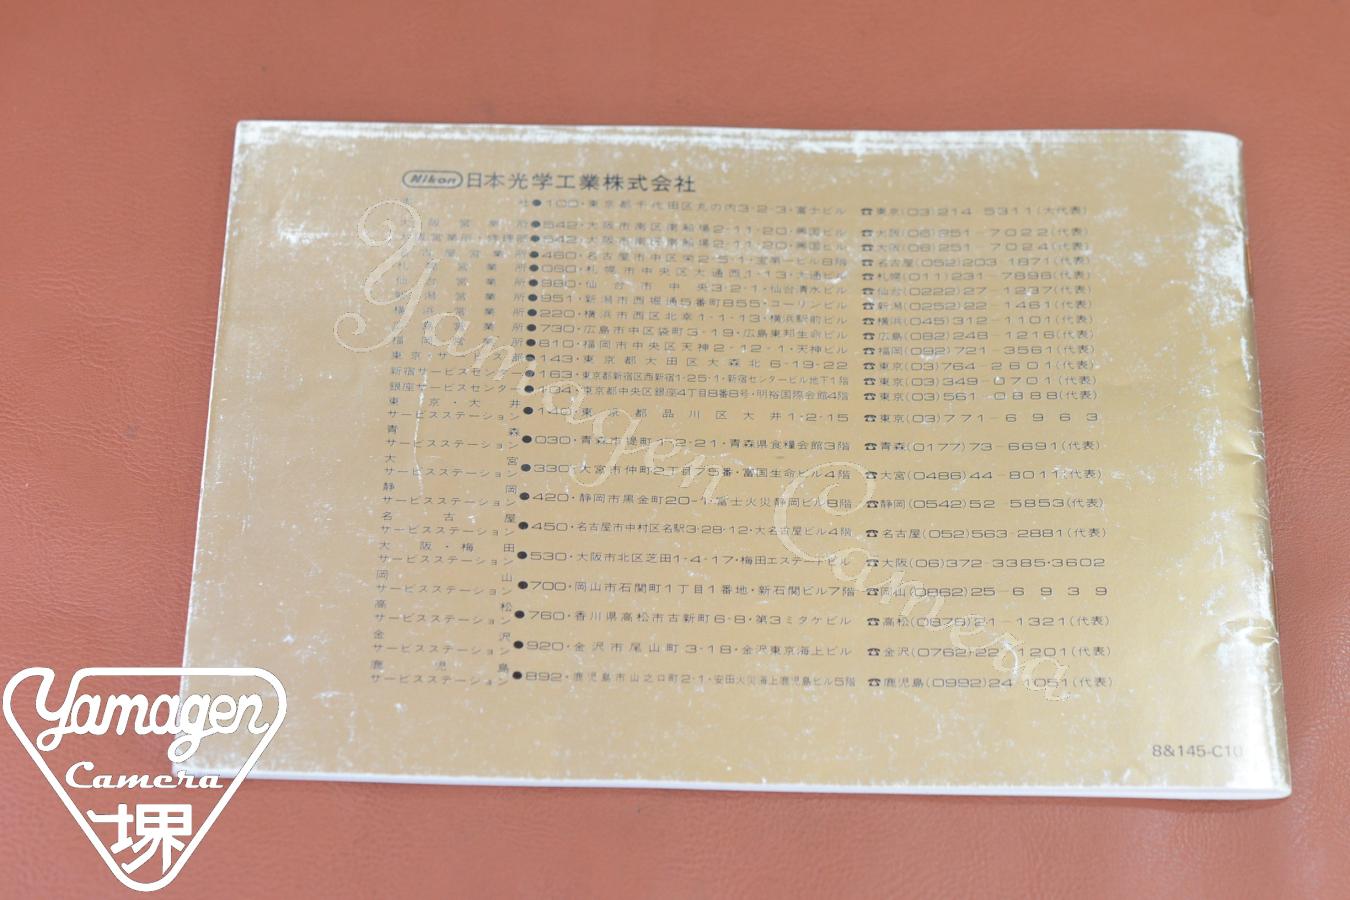 Nikon 日本光学工業株式会社
社●100・東京都千代田区丸の内3-2-3・富士ビル ☎東京(03)214-5311(大代表)
大阪営業所●542・大阪市南区南船場2-11-20・興国ビル ☎大阪(06)251-7022(代表)
●542・大阪市南区南船場2-11-20・興国ビル ☎大阪(06)251-7024(代表)
名古屋営業所●460・名古屋市中区栄2-5-1・宝第一ビル8階 ☎名古屋(052)203-1871(代表)
札幌営業所●060・札幌市中央区大通西1-13・大通ビル ☎札幌(011)231-7896(代表)
仙台営業所●980・仙台市中央3-2-1・仙台清水ビル ☎仙台(0222)27-1237(代表)
新潟営業所●951・新潟市西堀通5番町855・コーリンビル ☎新潟(0252)22-1461(代表)
横浜営業所●220・横浜市西区北幸1-1-13・横浜駅前ビル ☎横浜(045)312-1101(代表)
広島営業所●730・広島市中区袋町3-19・広島東邦生命ビル ☎広島(082)248-1216(代表)
福岡営業所●810・福岡市中央区天神2-12-1・天神ビル ☎福岡(092)721-3561(代表)
東京・サービス部●143・東京都大田区大森北6-19-22 ☎東京(03)764-2601(代表)
新宿サービスセンター●163・東京都新宿区西新宿1-25-1・新宿センタービル地下1階 ☎東京(03)349-0701(代表)
銀座サービスセンター●104・東京都中央区銀座4丁目8番8号・明裕国際会館4階 ☎東京(03)561-0888(代表)
東京・大井
サービスステーション●140・東京都品川区大井1-2-15 ☎東京(03)771-6963
青森
サービスステーション●030・青森市堤町1-2-21・青森県食糧会館3階 ☎青森(0177)73-6691(代表)
大宮
サービスステーション●330・大宮市仲町2丁目75番・富国生命ビル4階 ☎大宮(0486)44-8011(代表)
静岡
サービスステーション●420・静岡市黒金町20-1・富士火災静岡ビル8階 ☎静岡(0542)52-5853(代表)
名古屋
サービスステーション●450・名古屋市中村区名駅3-28-12・大名古屋ビル4階 ☎名古屋(052)563-2881(代表)
大阪・梅田
サービスステーション●530・大阪市北区芝田1-4-17・梅田エステートビル ☎大阪(06)372-3385・3602
岡山
サービスステーション●700・岡山市石関町1丁目1番地・新石関ビル7階 ☎岡山(0862)25-6939
高松
サービスステーション●760・香川県高松市古新町6-8・第3ミタケビル ☎高松(0878)21-1321(代表)
金沢
サービスステーション●920・金沢市尾山町3-18・金沢東京海上ビル ☎金沢(0762)22-1201(代表)
鹿児島
サービスステーション●892・鹿児島市山之口町2-1・安田火災海上鹿児島ビル5階 ☎鹿児島(0992)24-1051(代表)
8&145-C10
Yamagen Camera
Yamagen
Camera
堺